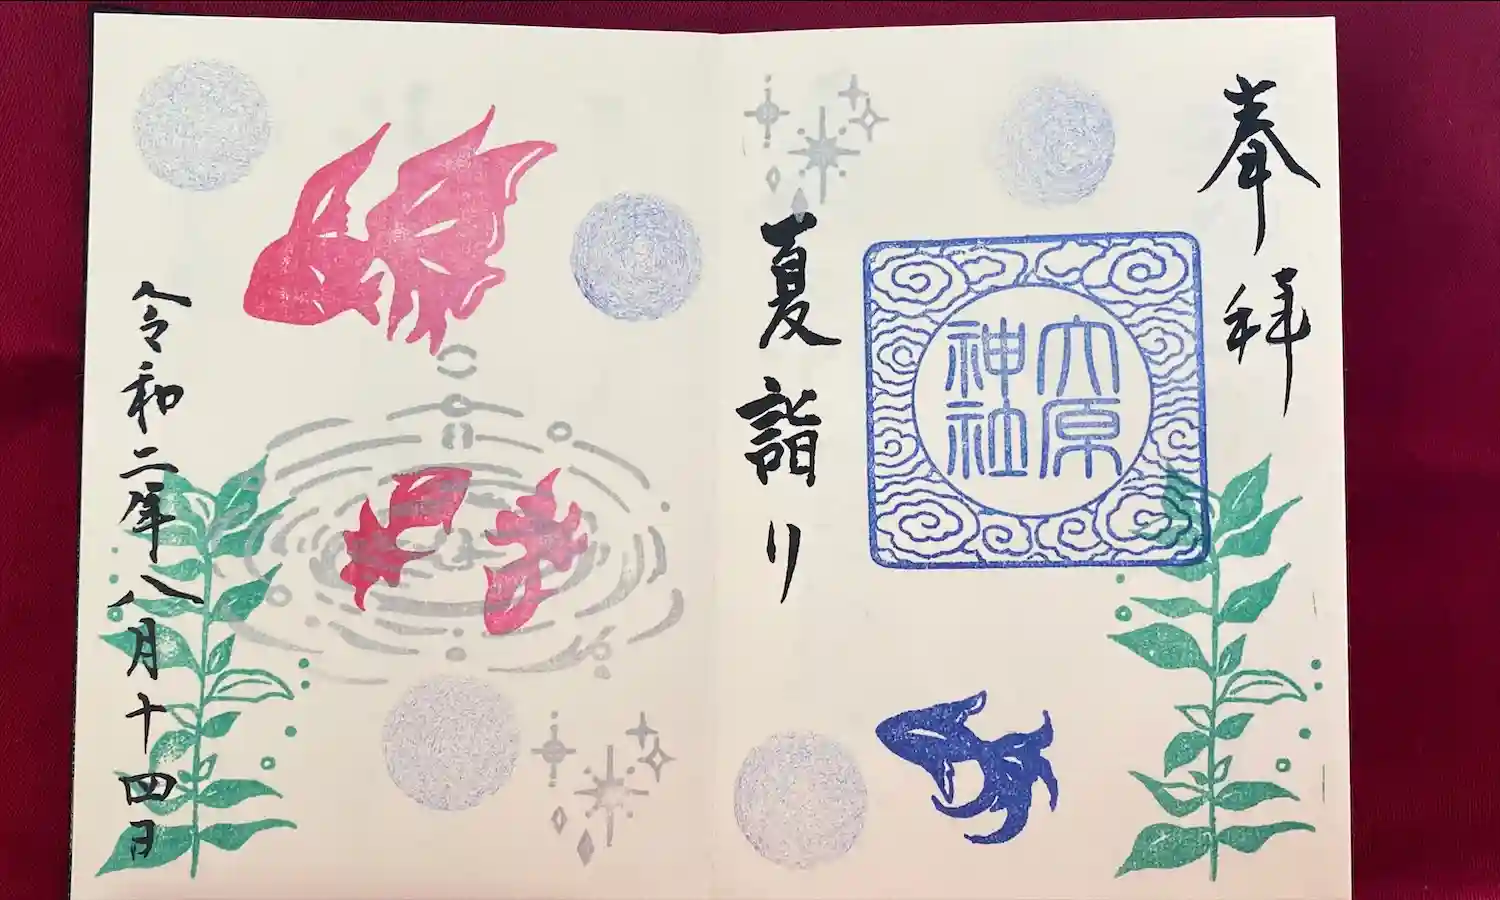 奉拝
大原
神社
夏詣り
令和二年八月十四日